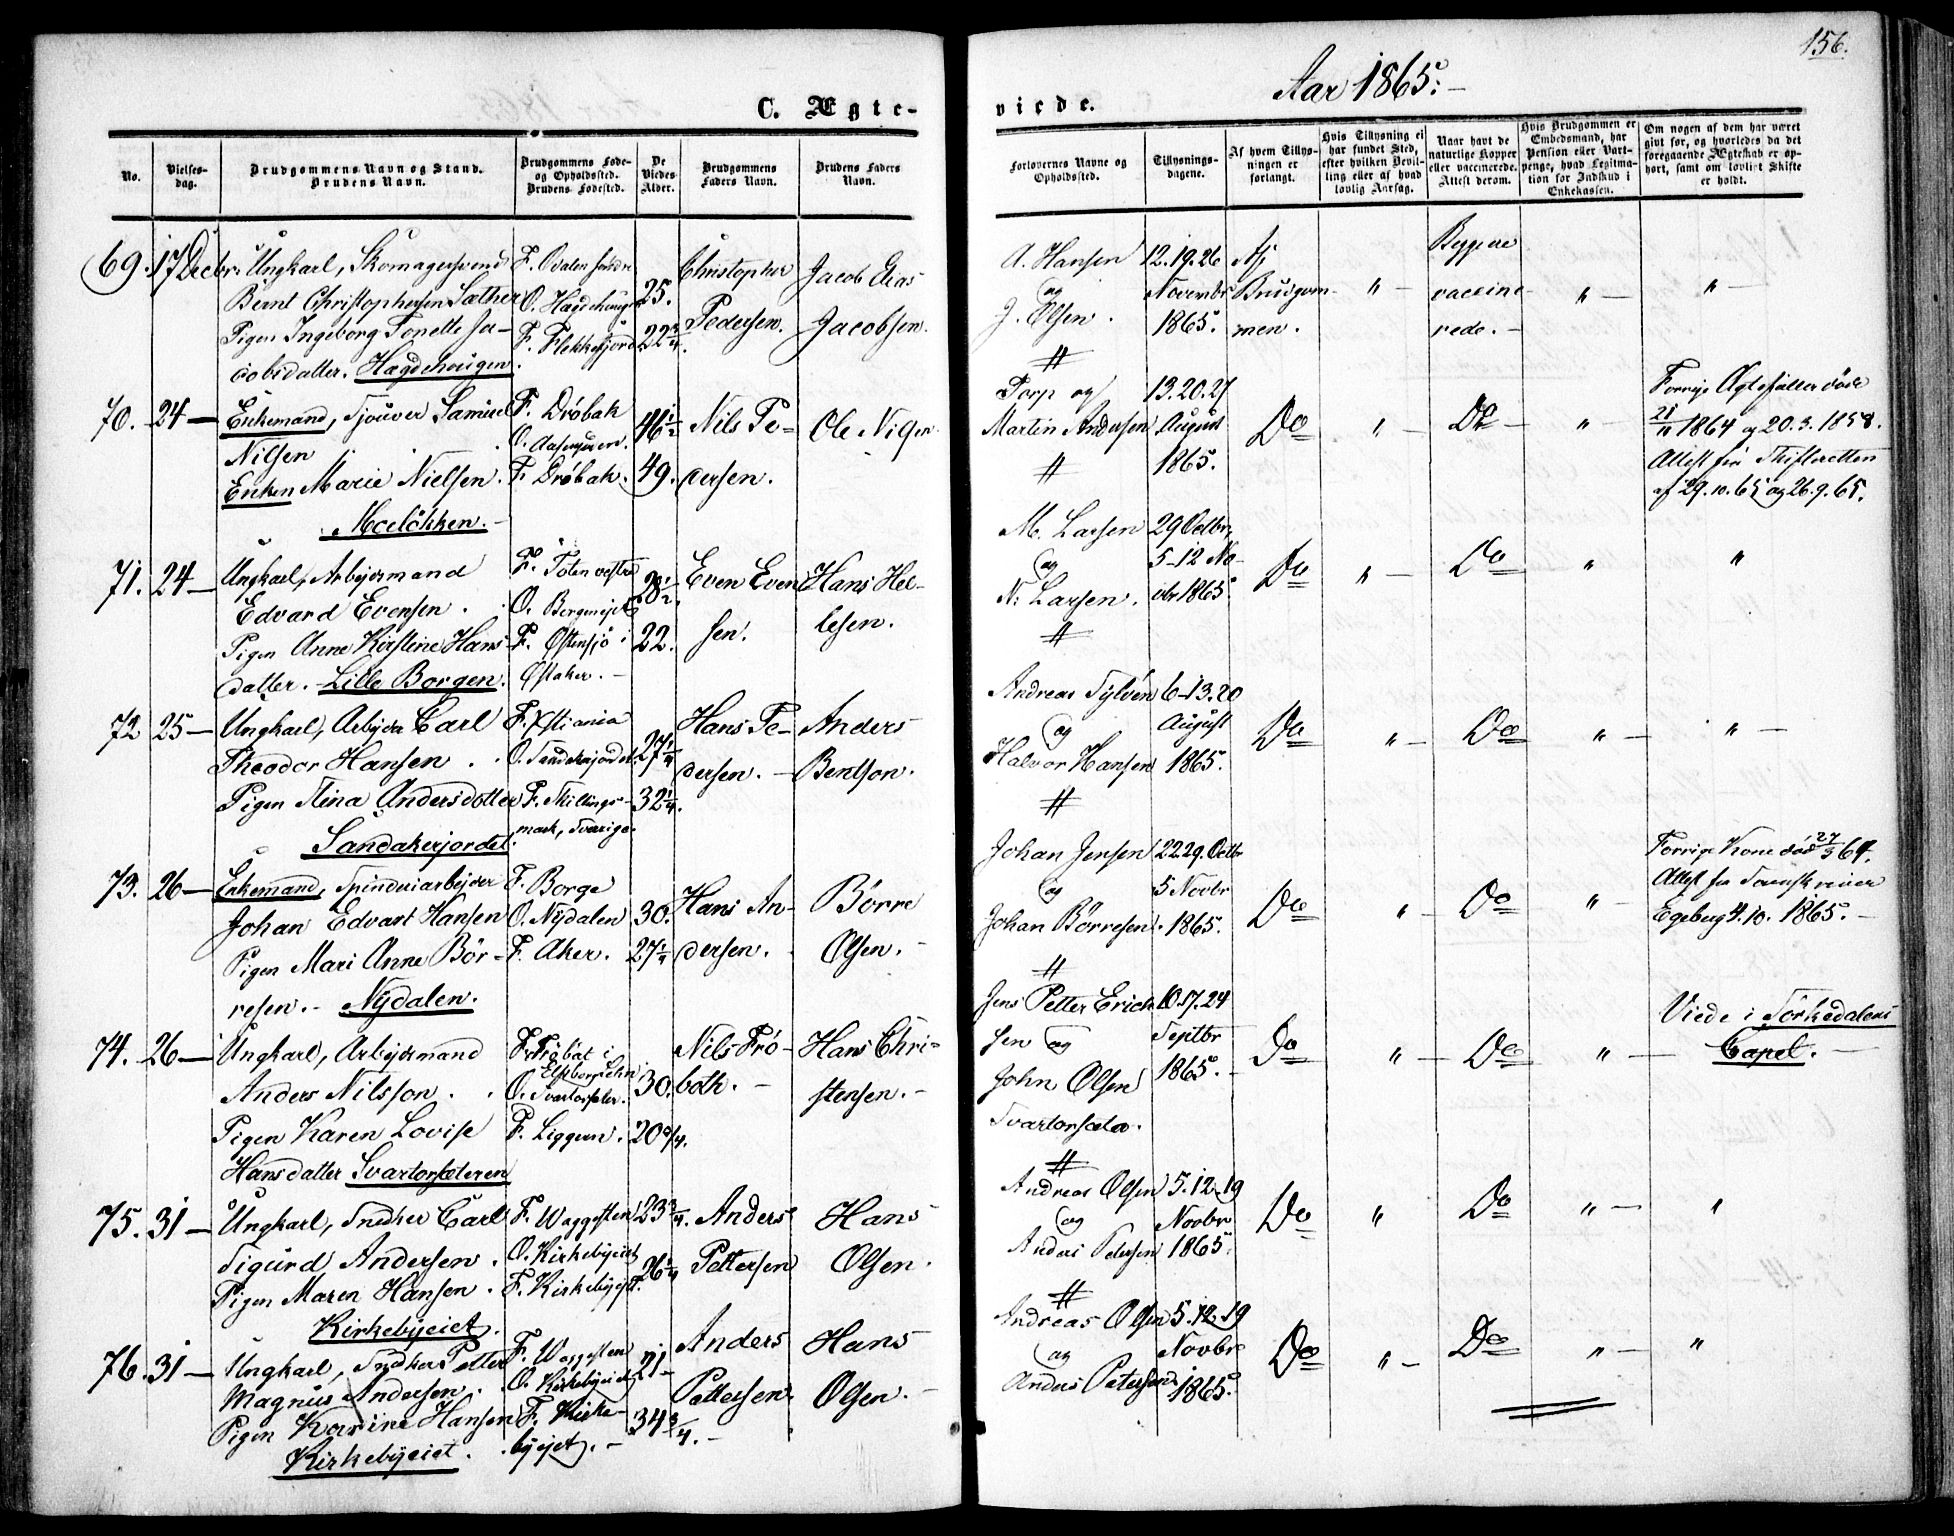 156.
Aar 1865.
C. Ægte-
viede.
No.
Vielses-
dag.
Brudgommens Navn og Stand.
Brudens Navn.
Brudgommens Føde-
og Opholdssted.
Brudens Fødested.
De
Viedes
Alder.
Brudgommens
Faders Navn.
Brudens Faders
Navn.
Forlovernes Navne og
Opholdssted.
Tillysnings-
dagene.
Af hvem Tillys-
ningen er
forlangt.
Hvis Tillysning ei
har fundet Sted,
efter hvilken Bevil-
ling eller af hvad
lovlig Aarsag.
Naar havt de
naturlige Kopper
eller vaccinerede.
Attest derom.
Hvis Brudgommen er
Embedsmand, har
Pension eller Vart-
penge, hvad Legitima-
tion for Indskud i
Enkekassen.
Om nogen af dem har været
givt før, og hvorledes da det
foregaaende Ægteskab er op-
hørt, samt om lovligt Skifte
er holdt.
69. 17 Decbr. Ungkarl, Skomagersvend
Bernt Christophersen Sæther
Pigen Ingeborg Tonette Ja-
cobsdatter. Hægdehougen.
F. Odalen søndre
O. Hægdehougen
F. Flekkefjord
25.
22 3/4.
Christopher
Pedersen.
Jacob Elias
Jacobsen.
A. Hansen
og
J. Olsen.
12. 19. 26
Novembr
1865.
Af
Brudgom-
men.
" -
Begge
vaccine-
rede. -
" -
" -
70. 24 - Enkemand, Sjouer Samuel
Nilsen
Enken Marie Nielsen.
Moeløkken. -
F. Drøbak
O.
F. Drøbak.
46 1/2
49.
Nils Pe-
dersen.
Ole
Torp og
Martin Andersen
13. 20. 27
August
1865.
Do
" -
Do -
" -
Forrige Ægtefæller døde
1864 og 20. 3. 1858.
Attest fra Skifteretten
af 29. 10. 65 og 26. 9. 65.
71. 24 - Ungkarl, Arbejdsmand
Edvard Evensen.
Pigen Anne Kirstine Hans-
datter. - Lille Borgen.
F. Toten vestre
O. Borgenejet
F. Østensjø i
Østaker. -
28 1/2.
22.
Even Even-
sen.
Hans Hel-
lesen.
M. Larsen
og
N. Larsen.
29 Octbr,
5-12 No-
vbr 1865.
Do
" -
Do
"
"
72 25 - Ungkarl, Arbejder Carl
Theodor Hansen.
Pigen Stina Andersdotter
Sandakerjordet.
F. Xstiania
O. Sandakerjordet.
F. Skillings-
mark, Sverige.
27 1/4
32 1/4.
Hans Pe-
dersen. -
Anders
Bentson.
Andreas Sylvén
og
Halvor Hansen
6-13. 20
August
1865.
Do
" -
Do
" -
" -
73. 26 - Enkemand, Spinderiarbejder
Johan Edvart Hansen
Pigen Mari Anne Bør-
resen. - Nydalen.
F. Borge
O. Nydalen
F. Aker.
30.
27 1/4
Hans An-
dersen.
Børre
Olsen. -
Johan Jensen
og
Johan Børresen.
22. 29. Octbr
5 Novbr
1865.
Do
" -
Do
" -
Forrige Kone død 27/3 64.
Attest fra Sorenskriver
Egeberg 4. 10. 1865. -
74. 26 - Ungkarl, Arbejdsmand
Anders Nilsson.
Pigen Karen Lovise
Hansdatter Svartorsæteren
F. Frøbat i
Elfsborgs Lehn
O. Svartorsæter.
F. Liggern.
30.
20 3/4.
Nils Frø-
both. -
Hans Chri-
stensen. -
Jens Petter Erich-
sen og
John Olsen
Svartorsæter.
10. 17. 24
Septbr
1865. -
Do
" -
Do
" -
Viede i Sørkedalens
Capel. -
75. 31 - Ungkarl, Snedker Carl
Sigurd Andersen.
Pigen Maren Hansen.
Kirkebyeiet.
F. Waggesten
O. Kirkebyeiet
F. Kirkebyeiet.
23 3/4.
26 1/4
Anders
Pettersen
Hans
Olsen.
Andreas Olsen
og
Anders Petersen
5. 12. 19
Novbr
1865.
Do
"
Do
" -
"
76. 31 - Ungkarl, Snedker Petter
Magnus Andersen.
Pigen Karine Hansen
Kirkebyeiet.
F. Waggesten
O. Kirkebyeiet
F. Kirke-
byejet. -
21 -
34 3/4. -
Anders
Pettersen.
Hans
Olsen. -
Andreas Olsen
og
Anders Petersen
5. 12. 19
Novbr
1865.
Do
" -
Do
" -
"